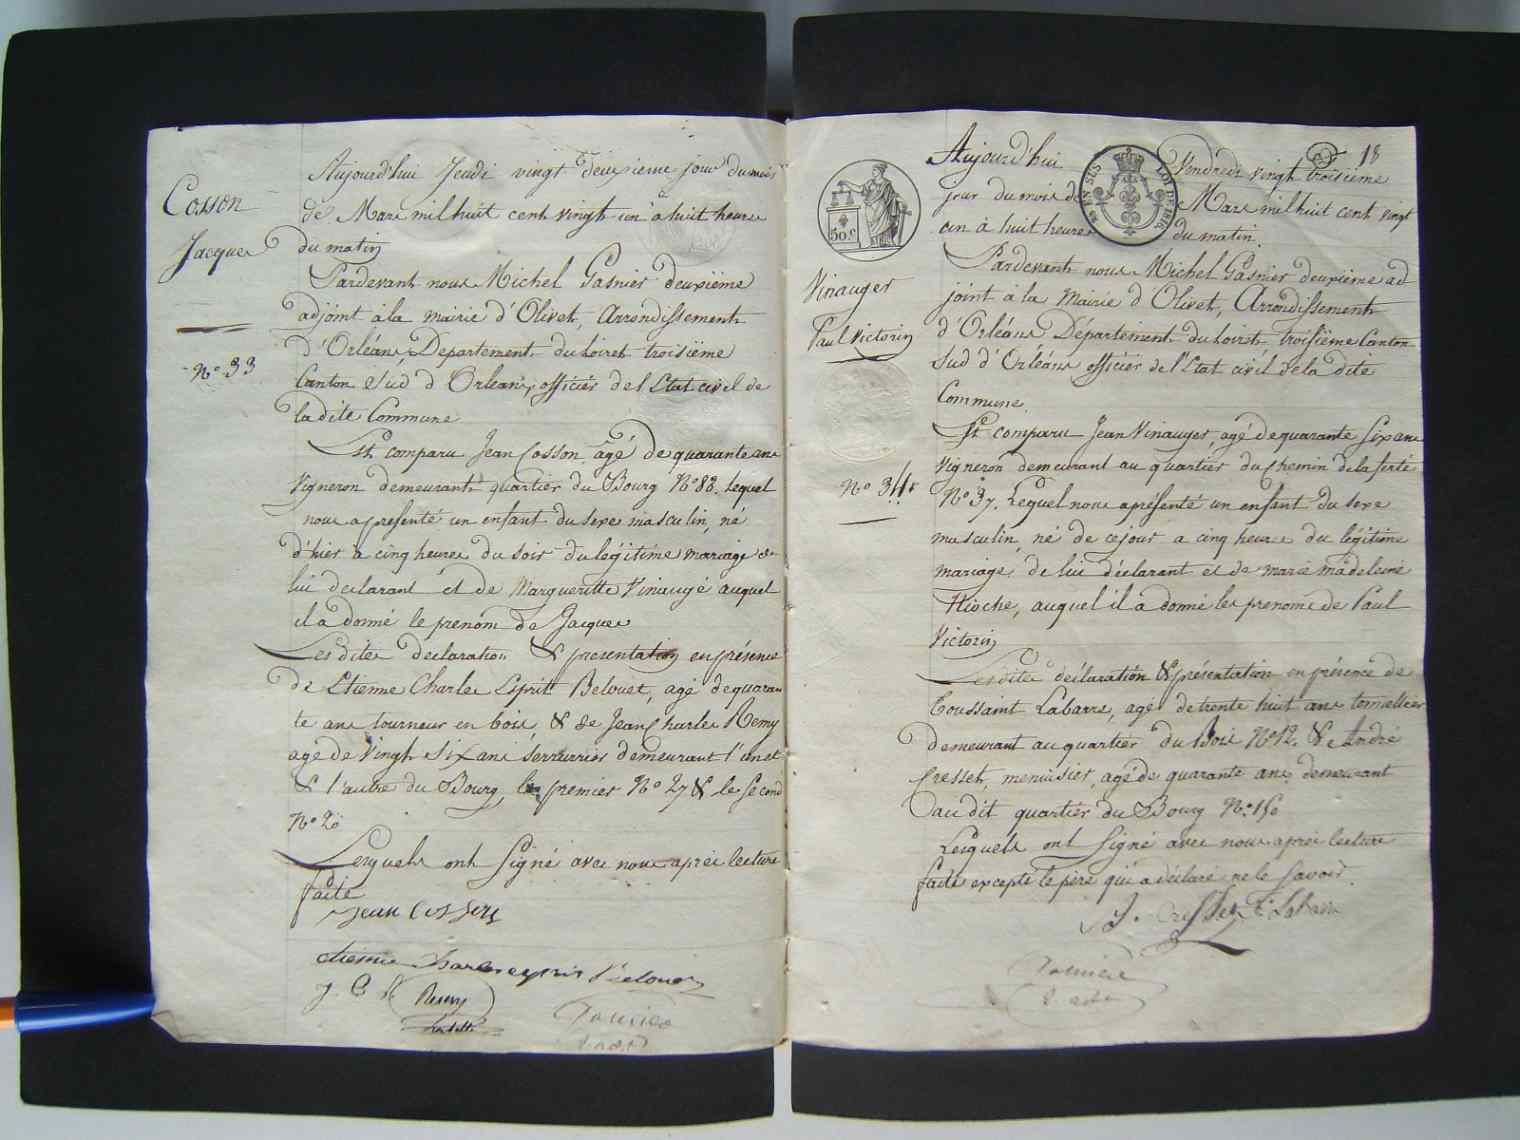 Cosson
Jacques
N° 33
Aujourd'hui Jeudi vingt deuxieme jour du mois
de Mars mil huit cent vingt un a huit heures
du matin
Pardevant nous Michel Gasnier deuxième
adjoint à la mairie d'Olivet, Arrondissement
d'Orléans, Departement du Loiret troisième
Canton Sud d'Orleans, officier de l'Etat civil de
la dite Commune
Est comparu Jean Cosson agé de quarante ans
Vigneron demeurant quartier du Bourg N° 83. lequel
nous a présenté un enfant du sexe masculin, né
d'hier à cinq heures du soir du légitime mariage de
lui declarant et de Margueritte Vinaugé auquel
il a donné le prenom de Jacques
Les dites declaration & presentation en présence
de Etienne Charles Esprit Belouet, agé de quaran
te ans tourneur en bois, & de Jean Charles Remy
agé de Vingt Six ans serrurier demeurant l'un et
& l'autre du Bourg, le premier N° 27 & le second
N° 20
Lesquels ont Signé avec nous après lecture
faite
Jean Cosson
etienne Charles esprit Belouet
J. C. Remy
18
50 c.
EN SUS
LOI DE 1816
Vinauger
Paul Victorin
N° 34
Aujourd'hui Vendredi vingt troisième
jour du mois de Mars mil huit cent vingt
un à huit heures du matin.
Pardevant nous Michel Gasnier deuxième ad
joint à la Mairie d'Olivet, Arrondissement
d'Orléans Département du Loiret troisième Canton
Sud d'Orléans officier de l'Etat civil de la dite
Commune
Est comparu Jean Vinauger, agé de quarante six ans
Vigneron demeurant au quartier du Chemin de la ferté
N° 37. Lequel nous a présenté un enfant du sexe
masculin, né de ce jour a cinq heures du légitime
mariage de lui déclarant et de marie madeleine
Hioche, auquel il a donné les prenoms de Paul
Victorin
Les dites déclaration & présentation en présence de
Toussaint Labarre, agé de trente huit ans tonnellier
demeurant au quartier du Bois N° 12. & de André
Cresset, menuisier, agé de quarante ans demeurant
au dit quartier du Bourg N°
Lesquels ont Signé avec nous après lecture
faite excepté le père qui a déclaré ne le savoir.
Cresset